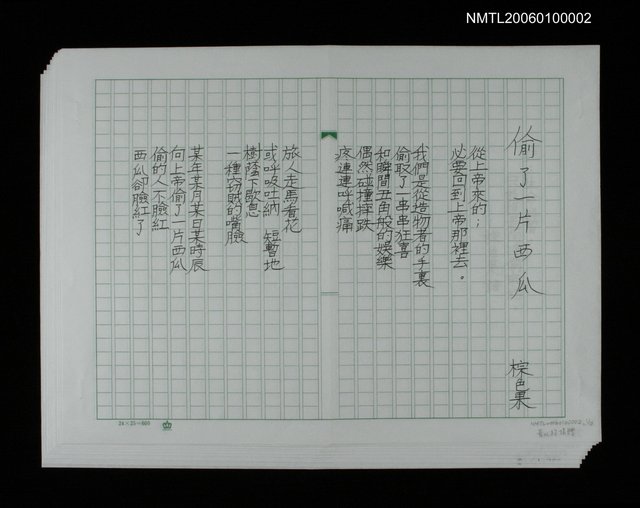 NMTL20060100002
偷了一片西瓜
棕色果
從上帝來的；
必要回到上帝那裡去。
我們是從造物者的手裏
偷取了一串串狂喜
和瞬間丑角般的娛樂
偶然碰撞摔跌
疼連連呼喊痛
旅人走馬看花
或呼吸吐納 短暫地
樹蔭下歇息
一種竊賊的嘴臉
某年某月某日某時辰
向上帝偷了一片西瓜
偷的人不臉紅
西瓜卻臉紅了
24×25＝600